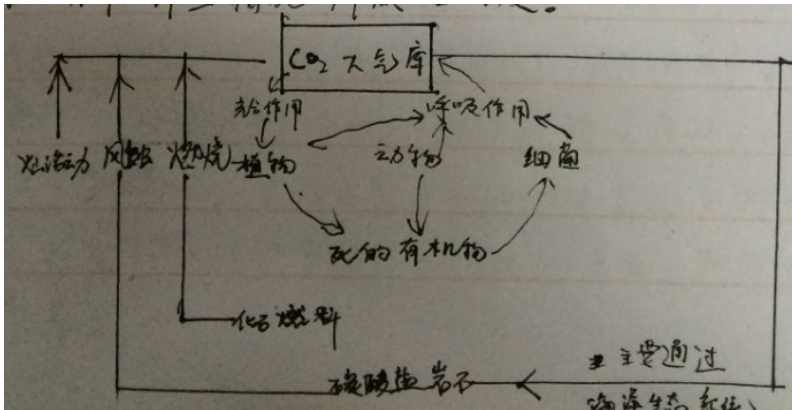 CO₂ 大气库
光合作用
呼吸作用
火山活动 风化 燃烧 植物 动物 细菌
死的有机物
化石燃料
主要通过
碳酸盐岩石